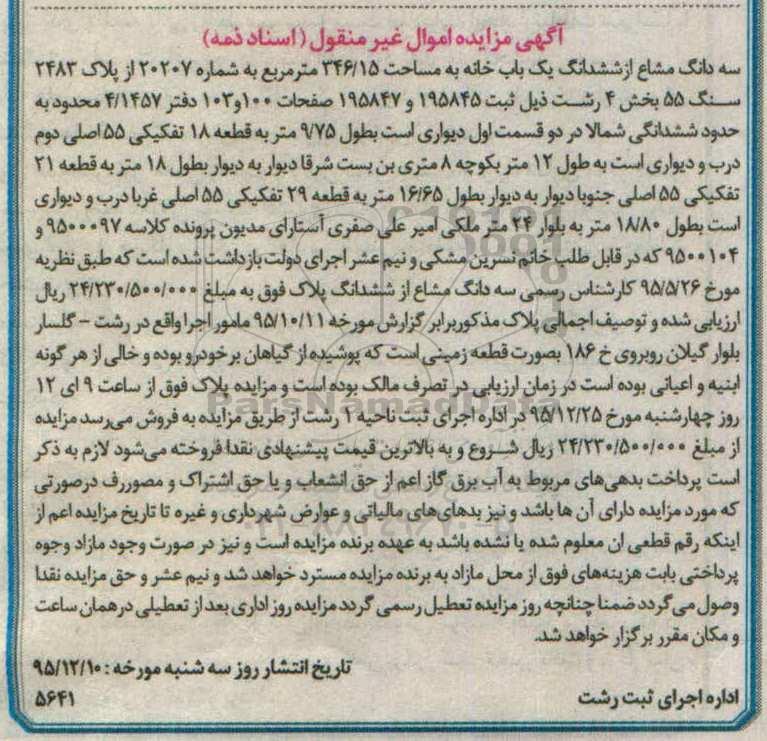 آگهی مزایده اموال غیر منقول (اسناد ذمه)
سه دانگ مشاع ازششدانگ یک باب خانه به مساحت ۳۴۶/۱۵ مترمربع به شماره ۲۰۲۰۷ از پلاک ۲۴۸۳
سنگ ۵۵ بخش ۴ رشت ذیل ثبت ۱۹۵۸۴۵ و ۱۹۵۸۴۷ صفحات ۱۰۰و۱۰۳ دفتر ۴/۱۴۵۷ محدود به
حدود ششدانگی شمالا در دو قسمت اول دیواری است بطول ۹/۷۵ متر به قطعه ۱۸ تفکیکی ۵۵ اصلی دوم
درب و دیواری است به طول ۱۲ متر بکوچه ۸ متری بن بست شرقا دیوار به دیوار بطول ۱۸ متر به قطعه ۲۱
تفکیکی ۵۵ اصلی جنوبا دیوار به دیوار بطول ۱۶/۶۵ متر به قطعه ۲۹ تفکیکی ۵۵ اصلی غربا درب و دیواری
است بطول ۱۸/۸۰ متر به بلوار ۲۴ متر ملکی امیر علی صفری آستارای مدیون پرونده کلاسه ۹۵۰۰۰۹۷ و
۹۵۰۰۱۰۴ که در قابل طلب خانم نسرین مشکی و نیم عشر اجرای دولت بازداشت شده است که طبق نظریه
مورخ ۹۵/۵/۲۶ کارشناس رسمی سه دانگ مشاع از ششدانگ پلاک فوق به مبلغ ۲۴/۲۳۰/۵۰۰/۰۰۰ ریال
ارزیابی شده و توصیف اجمالی پلاک مذکوربرابر گزارش مورخه ۹۵/۱۰/۱۱ مامور اجرا واقع در رشت - گلسار
بلوار گیلان روبروی خ ۱۸۶ بصورت قطعه زمینی است که پوشیده از گیاهان برخودرو بوده و خالی از هر گونه
ابنیه و اعیانی بوده است در زمان ارزیابی در تصرف مالک بوده است و مزایده پلاک فوق از ساعت ۹ ای ۱۲
روز چهارشنبه مورخ ۹۵/۱۲/۲۵ در اداره اجرای ثبت ناحیه ۱ رشت از طریق مزایده به فروش می‌رسد مزایده
از مبلغ ۲۴/۲۳۰/۵۰۰/۰۰۰ ریال شروع و به بالاترین قیمت پیشنهادی نقدا فروخته می‌شود لازم به ذکر
است پرداخت بدهی‌های مربوط به آب برق گاز اعم از حق انشعاب و یا حق اشتراک و مصوررف درصورتی
که مورد مزایده دارای آن ها باشد و نیز بدهای‌های مالیاتی و عوارض شهرداری و غیره تا تاریخ مزایده اعم از
اینکه رقم قطعی ان معلوم شده یا نشده باشد به عهده برنده مزایده است و نیز در صورت وجود مازاد وجوه
پرداختی بابت هزینه‌های فوق از محل مازاد به برنده مزایده مسترد خواهد شد و نیم عشر و حق مزایده نقدا
وصول می‌گردد ضمنا چنانچه روز مزایده تعطیل رسمی گردد مزایده روز اداری بعد از تعطیلی درهمان ساعت
و مکان مقرر برگزار خواهد شد.
تاریخ انتشار روز سه شنبه مورخه : ۹۵/۱۲/۱۰
اداره اجرای ثبت رشت ۵۶۴۱
ParsNamadData